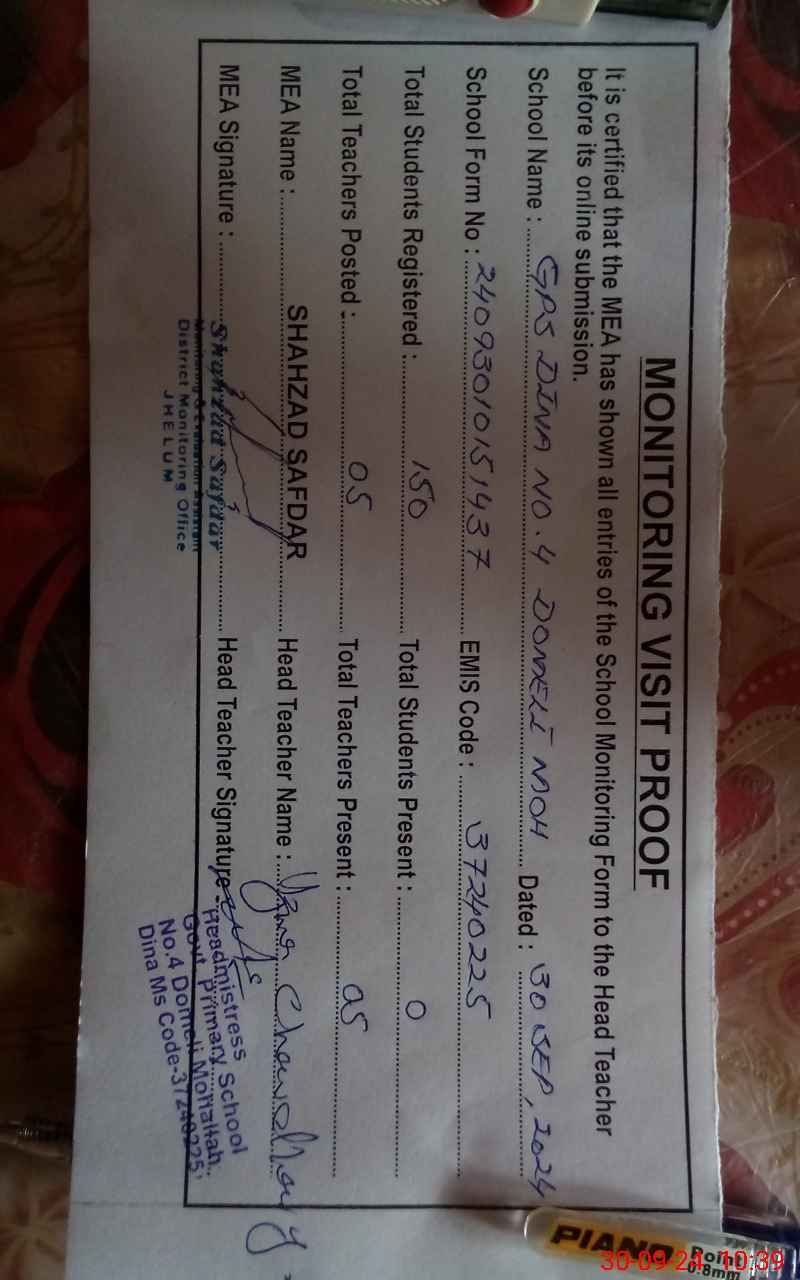 MONITORING VISIT PROOF
It is certified that the MEA has shown all entries of the School Monitoring Form to the Head Teacher
before its online submission.
School Name : GPS DINA NO. 4 DOMELI MOH Dated : 30 SEP, 2024
School Form No : 24093010151437 EMIS Code : 37240225
Total Students Registered : 150 Total Students Present : 0
Total Teachers Posted : 05 Total Teachers Present : 05
MEA Name : SHAHZAD SAFDAR Head Teacher Name : Chowdhary
MEA Signature : Shahzad Safdar Head Teacher Signature
Monitoring & Evaluation Assistant
District Monitoring Office
JHELUM
Headmistress
Govt. Primary School
No.4 Domeli Mohallah,
Dina Ms Code-37240225
PIANO Point
0.8mm
30-09-24 10:39